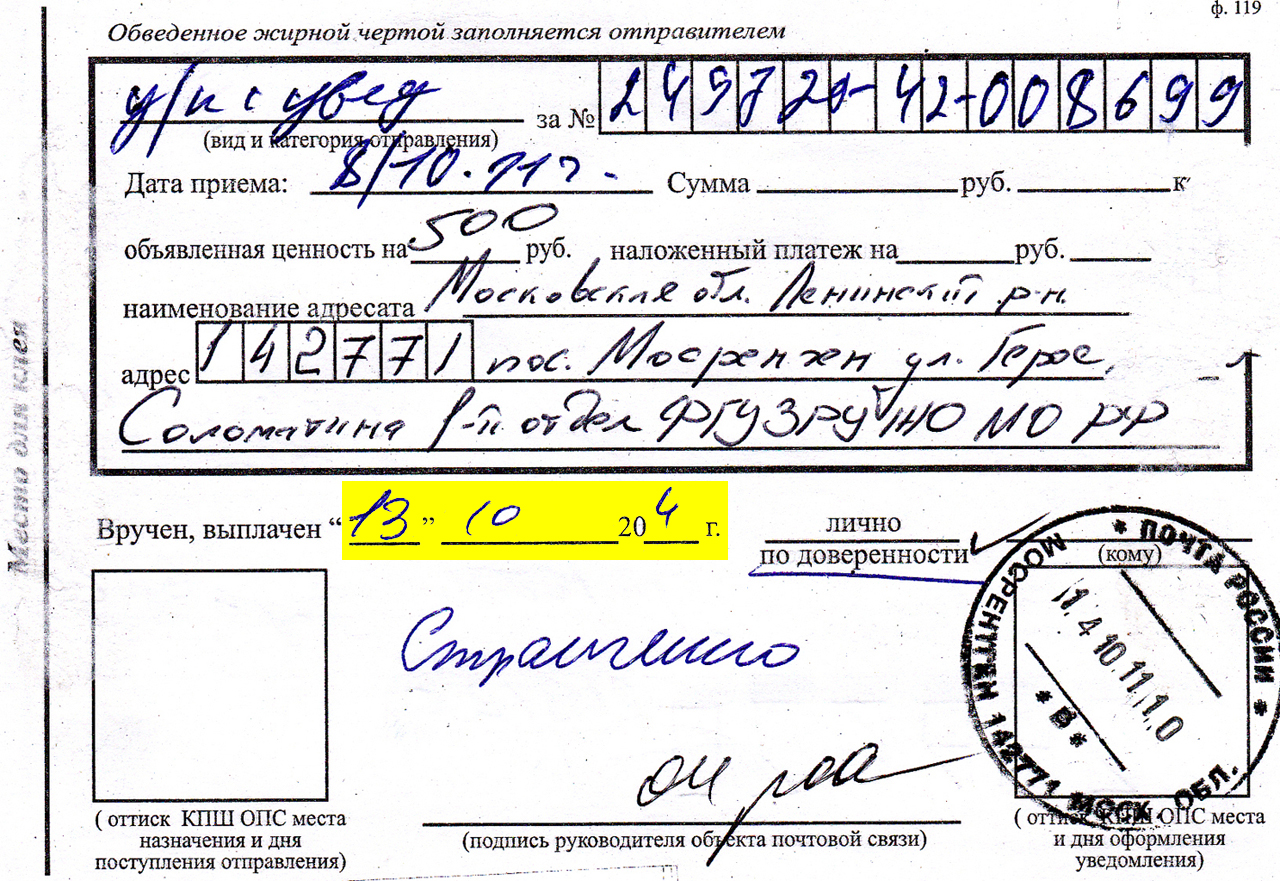 ф. 119
Обведенное жирной чертой заполняется отправителем
у/п с увед за № 249720-42-008699
(вид и категория отправления)
Дата приема: 8/10.11г. Сумма руб. к
объявленная ценность на 500 руб. наложенный платеж на руб.
наименование адресата Московская обл. Ленинский р-н.
адрес 142771 пос. Мосрентген ул. Героя
Соломатина 1-й отдел ФГУЗРУЖО МО РФ
Место для клея
Вручен, выплачен “13” 10 20 4 г. лично
по доверенности (кому)
* ПОЧТА РОССИИ *
МОСРЕНТГЕН 142771 МОСК. ОБЛ.
14.10.11.10
* В *
( оттиск КПШ ОПС места
назначения и дня
поступления отправления)
(подпись руководителя объекта почтовой связи)
( оттиск КПШ ОПС места
и дня оформления
уведомления)